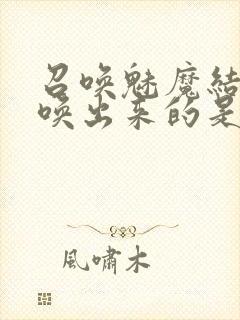 召唤魅魔结
唤出来的是
風嘯木